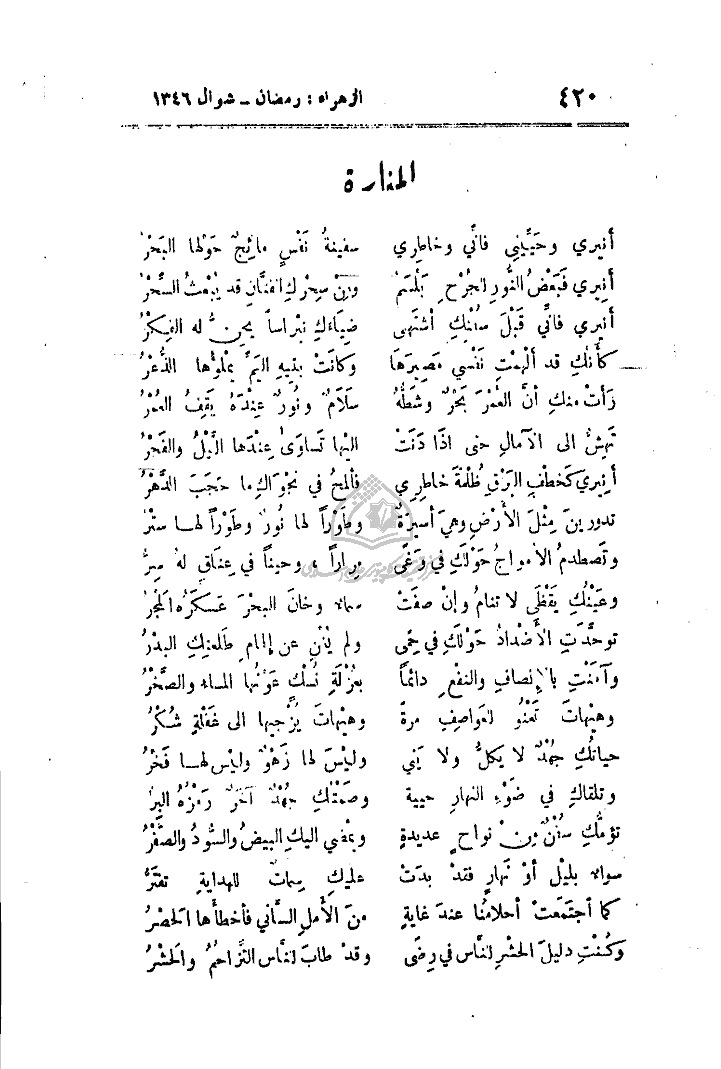 ٤٢٠ الزهراء : رمضان - شوال ١٣٤٦
المنارة
أنيري وحَيِّيني فانّي وخاطري سفينةُ نَفْسٍ مائجٌ حَولها البَحْرُ
أنيري فَبَعْضُ النُّورِ للجُرْحِ بَلْسَمٌ وإنْ سِحْركِ الفنَّانِ قد يُبْعثُ السِّحْرُ
أنيري فانّي قَبْلَ سُفْنِكِ أشتهي ضِيَاءَكِ نبراساً يحِنُّ له الفِكْرُ
كأنكِ قد ألهمْتِ نَفْسي مَصِيرَها وكانتْ بتيهِ اليَمِّ يملؤُها الذُّعْرُ
رَأتْ منكِ أنَّ العُمْرَ بَحْرٌ وشطُّهُ سَلَامٌ ونُورٌ عِنْدَهُ يَقِفُ العُمْرُ
تَهِشُّ الى الآمالِ حتى اذَا دَنَتْ اليها تَساوَى عِنْدَها الَّليْلُ والفَجْرُ
أنيري كَخَطْفِ البَرْقِ ظُلْمَةَ خاطري فألمحُ في نجوَاكِ ما حَجَبَ الدَّهْرُ
تدورينَ مِثْلَ الأرْضِ وهيَ أسيرَةٌ وطَوْراً لها نُورٌ وطَوْراً لهـا سترُ
وتَصطدمُ الأمواجُ حَوْلَكِ في وَغًى مِراراً ، وحيناً في عِناقٍ لهُ سِرُّ
وعَينُكِ يَقْظَى لا تنامُ وإنْ صفَتْ سماءٌ وخانَ البحْرَ عَسكَرُه المَجْرُ
توحَّدَتِ الأضْدادُ حَوْلَكِ في حِمًى ولم يُغْنِ عن إلمامِ طَلعتِكِ البدْرُ
وآمَنْتِ بالإِنصافِ والنفْعِ دائماً بعُزْلَةِ نُسْكٍ عَوْنُها الماءُ والصَّخْرُ
وهيْهاتَ تَعْنُو للعواصِفِ مرةً وهيْهاتَ يُزْجيها الى غَفْلَةٍ شُكْرُ
حياتُكِ جُهْدٌ لا يَكلُّ ولا يَني وليْسَ لها زَهْوٌ وليْس لهـا فَخْرُ
وتلقاكِ في ضَوْءِ النهارِ حبيبةً وصَمْتُكِ جُهْدٌ آخَرٌ رَمْزُهُ البِرُّ
تَؤمُّكِ سُفْنٌ مِنْ نواحٍ عديدةٍ ويمْضي اليكِ البيضُ والسُّودُ والصُّفْرُ
سواءٌ بليْلٍ أوْ نَهارٍ فقدْ بدَتْ عليكِ سِماتٌ للهدايةِ تفترُّ
كما اجتَمعتْ أحلامُنا عندَ غايةٍ منَ الأملِ السَّاني فأخطأَها الحَصْرُ
وكُنتِ دليلَ الحشْرِ للنَّاس في رِضًى وقدْ طابَ للنَّاسِ التَّزاحُمُ والحَشْرُ